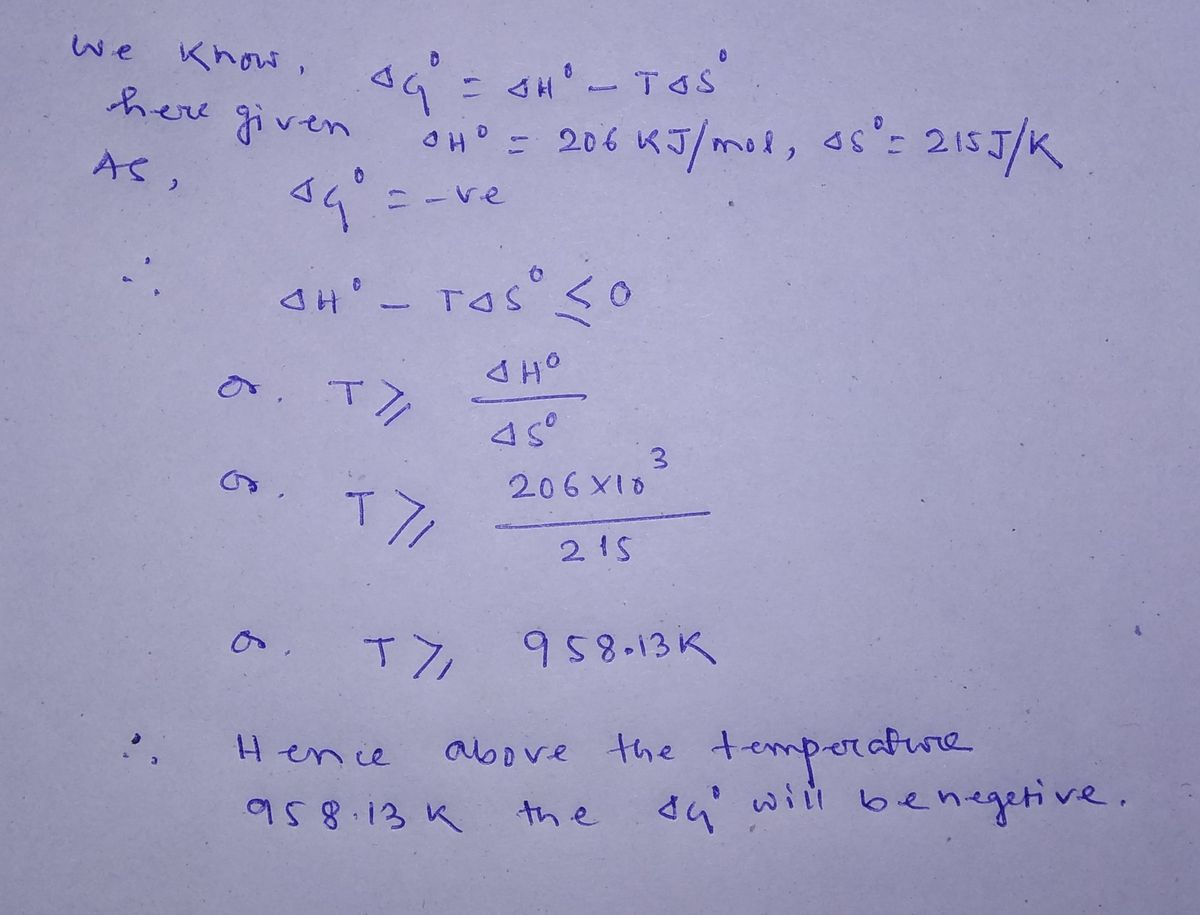 We know, ΔG° = ΔH° - TΔS°
here given ΔH° = 206 KJ/mol, ΔS° = 215 J/K
As, ΔG° = -ve
∴ ΔH° - TΔS° ≤ 0
or, T ⩾ ΔH° / ΔS°
or, T ⩾ 206×10³ / 215
or, T ⩾ 958.13K
∴ Hence above the temperature
958.13 K the ΔG° will be negetive.